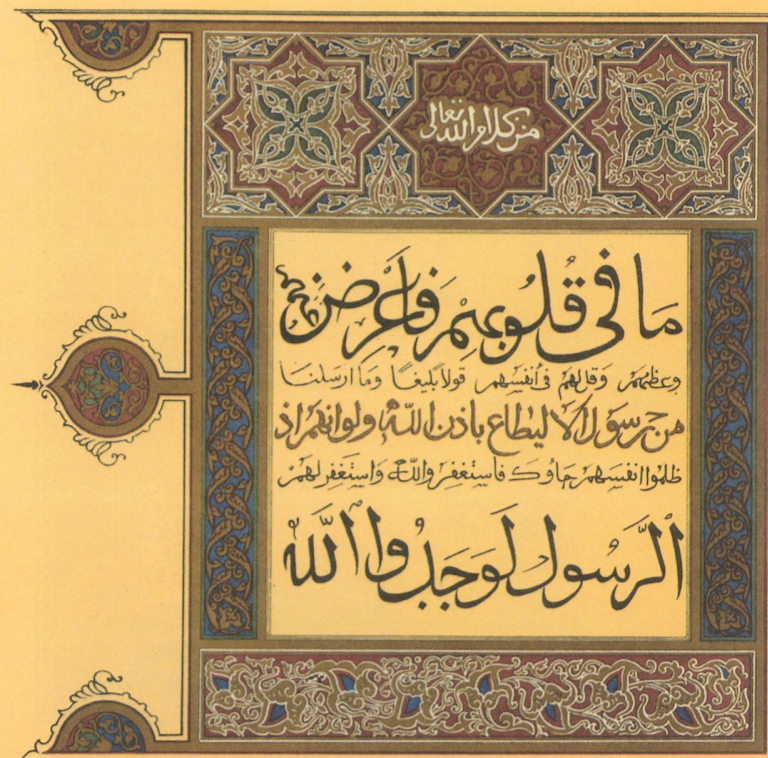 من كلام الله تعالى
مَا فِى قُلُوبِهِمْ فَأَعْرِضْ عنهم
وعظهم وقل لهم فى أنفسهم قولا بليغا وما ارسلنا
من رسول الا ليطاع باذن الله ولو انهم اذ
ظلموا انفسهم جاؤك فاستغفروا الله واستغفر لهم
الرَّسُولُ لَوَجَدُوا اللَّهَ